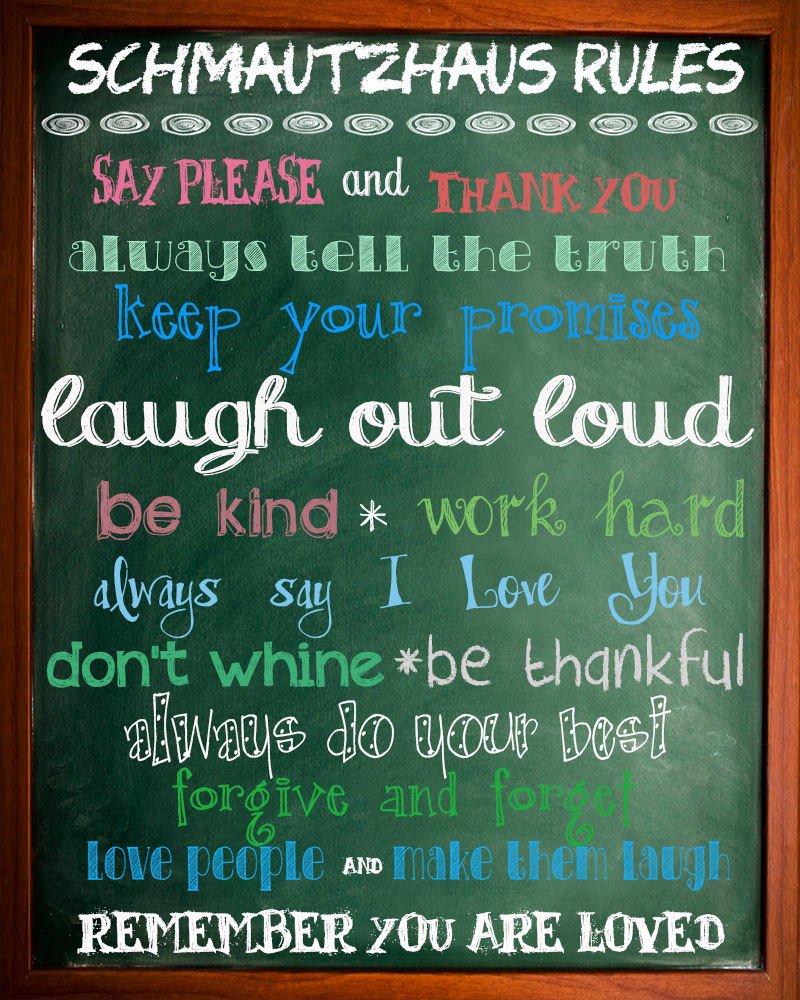 SCHMAUTZHAUS RULES
SAY PLEASE and THANK YOU
always tell the truth
keep your promises
laugh out loud
be kind * work hard
always say I Love You
don't whine *be thankful
always do your best
forgive and forget
love people AND make them laugh
REMEMBER YOU ARE LOVED